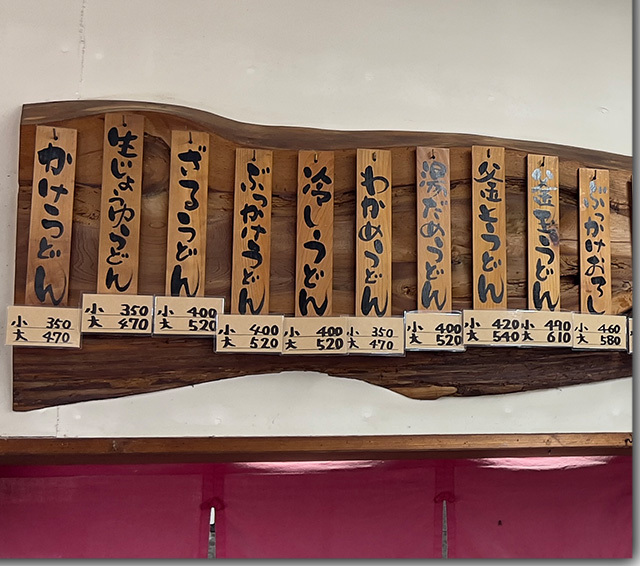 かけうどん
小 350
大 470
生じょうゆうどん
小 350
大 470
ざるうどん
小 400
大 520
ぶっかけうどん
小 400
大 520
冷しうどん
小 400
大 520
わかめうどん
小 350
大 470
湯だめうどん
小 400
大 520
釜上うどん
小 420
大 540
釜玉うどん
小 490
大 610
ぶっかけおろし
小 460
大 580